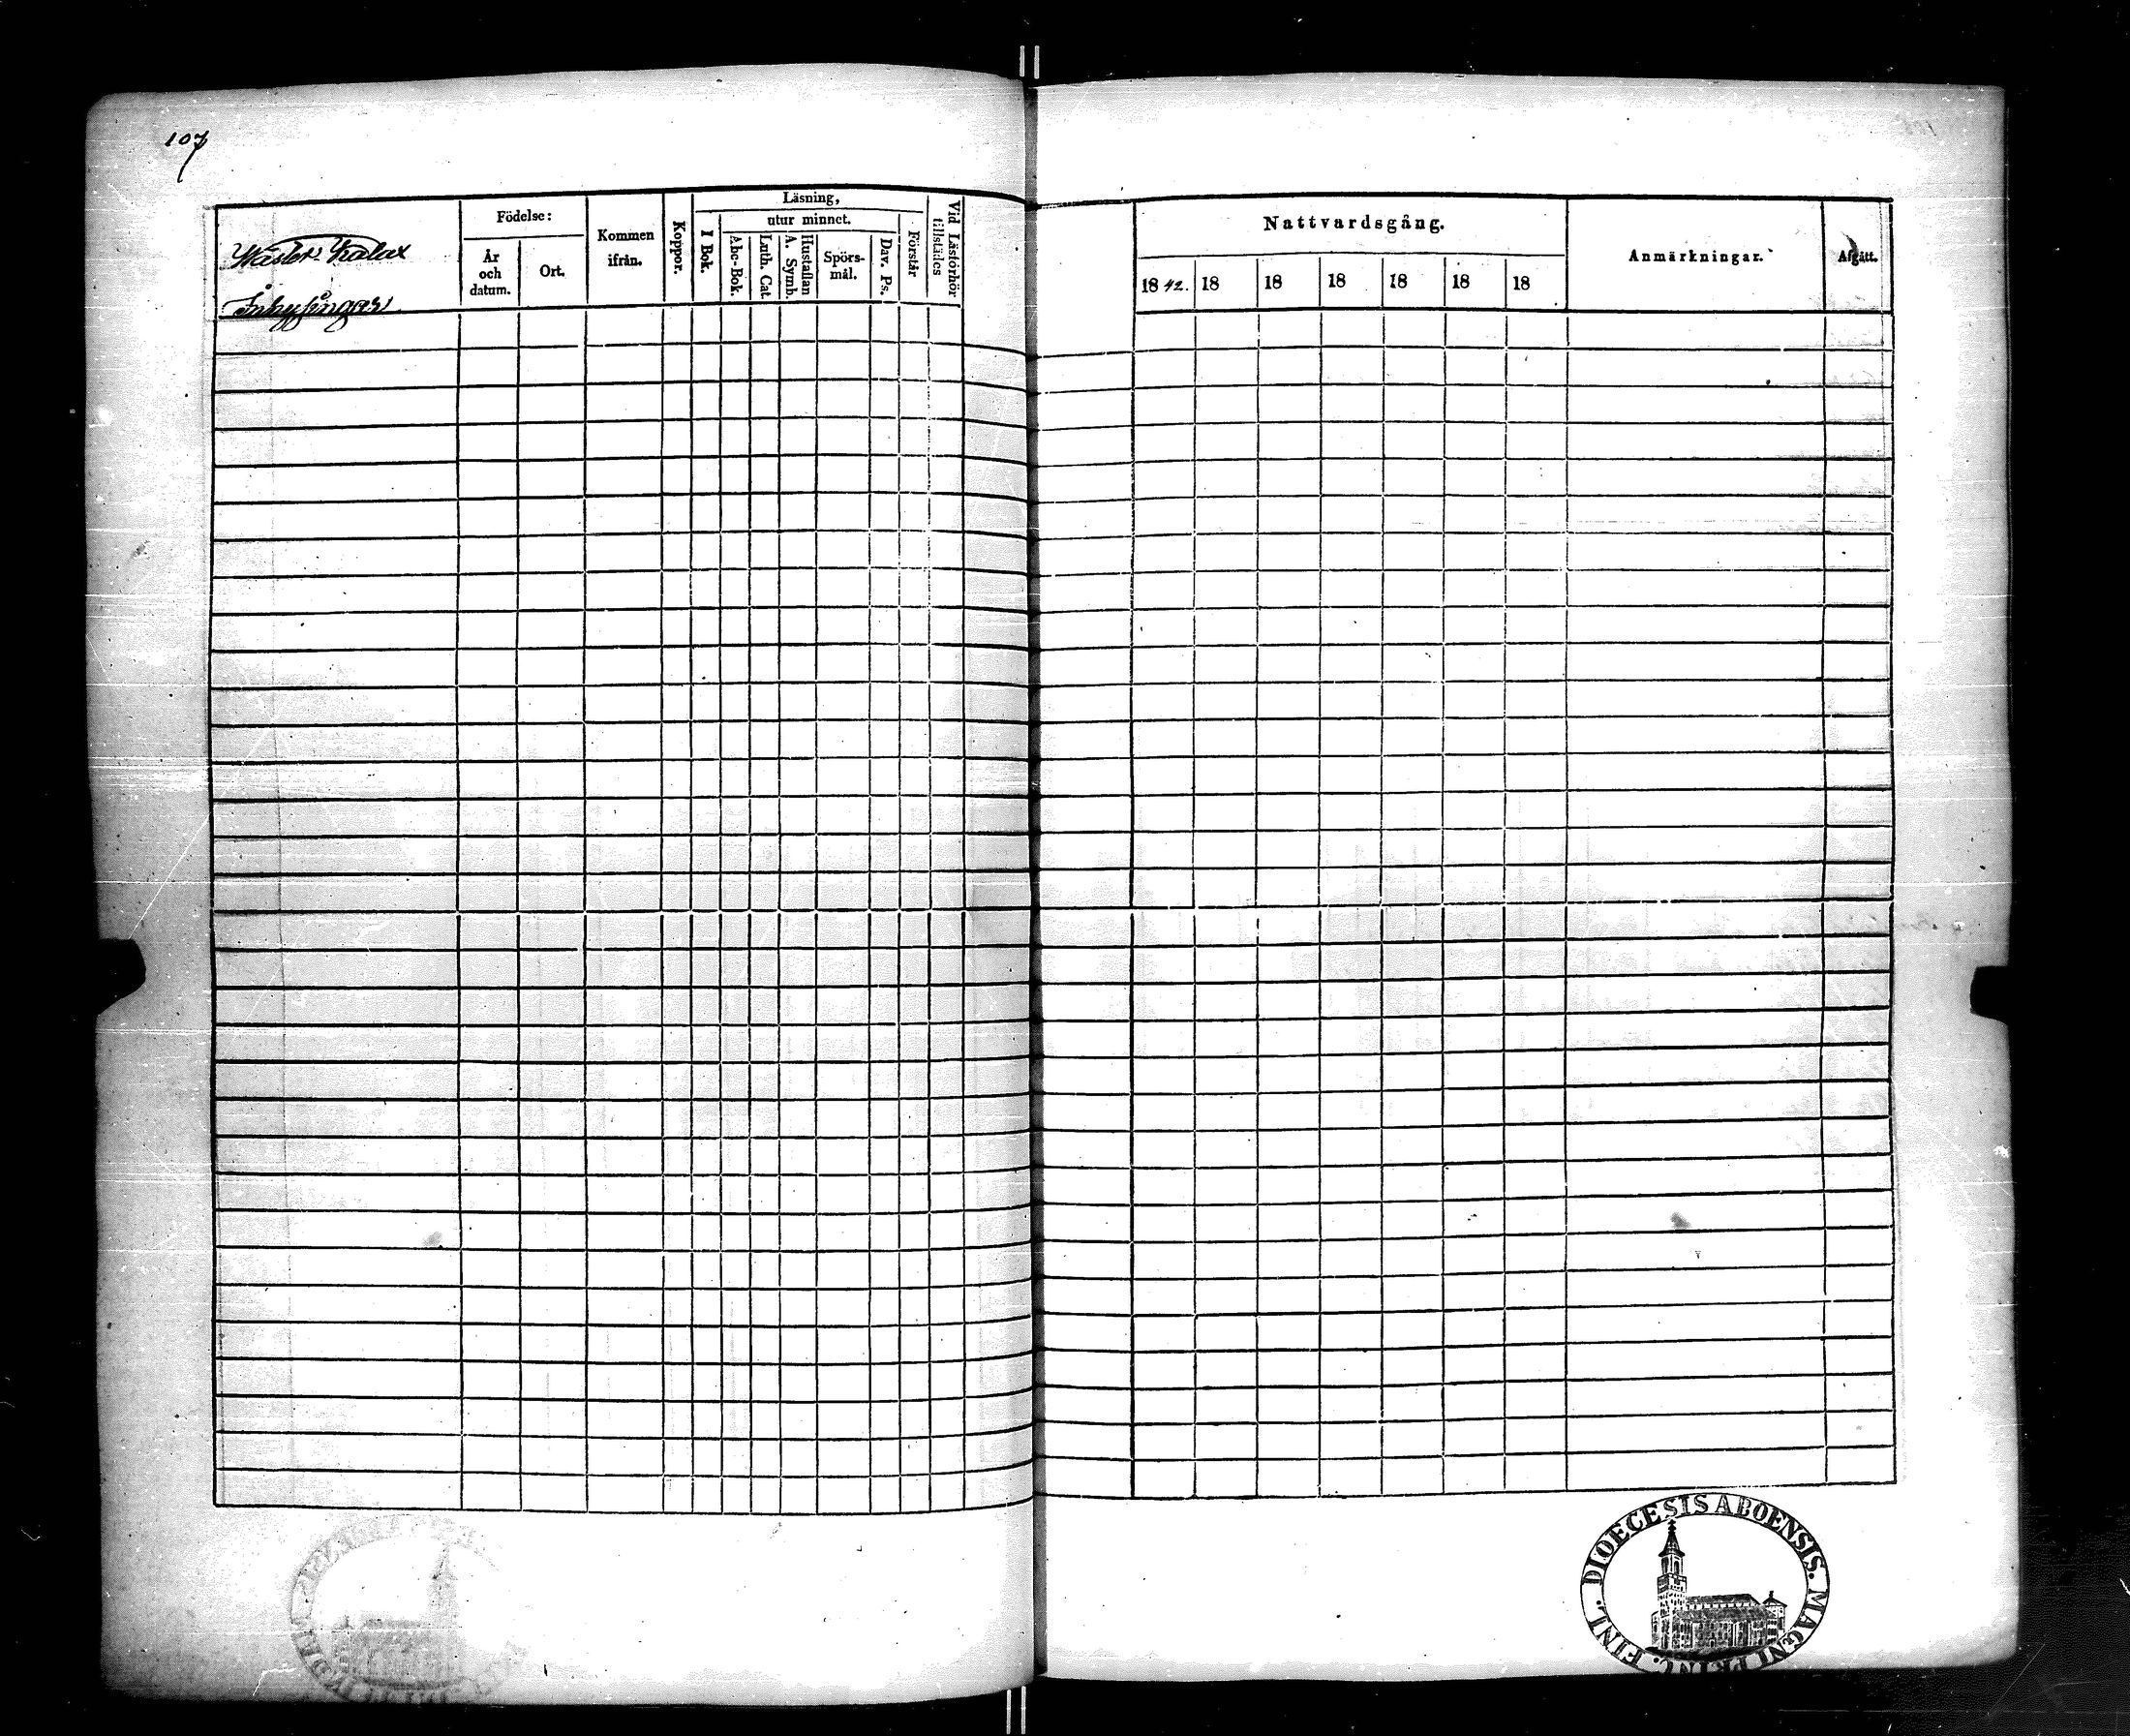 107
Wäster Kalax
Inhysingar
Födelse:
År
och
datum.
Ort.
Kommen
ifrån.
Koppor.
Läsning,
I Bok.
utur minnet.
Abc-Bok.
Luth. Cat.
Hustaflan
A. Symb.
Spörs-
mål.
Dav. Ps.
Förstår
Vid Läsförhör
tillstädes
Nattvardsgång.
1842. 18 18 18 18 18 18
Anmärkningar.
Afgått.
DIOECESIS ABOENSIS. MAGNI PRINC. FINL.